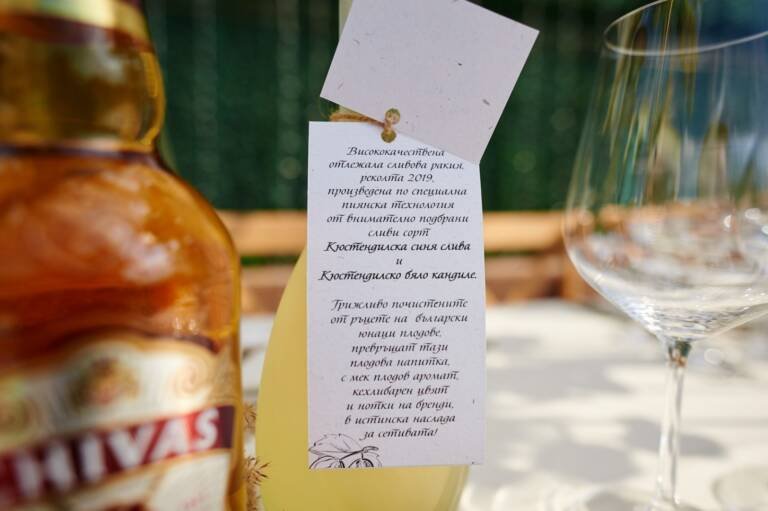 Висококачествена
отлежала сливова ракия,
реколта 2019,
произведена по специална
пиянска технология
от внимателно подбрани
сливи сорт
Кюстендилска синя слива
и
Кюстендилско бяло кандиле.
Грижливо почистените
от ръцете на български
юнаци плодове,
превръщат тази
плодова напитка,
с мек плодов аромат,
кехлибарен цвят
и нотки на бренди,
в истинска наслада
за сетивата!
HIVAS